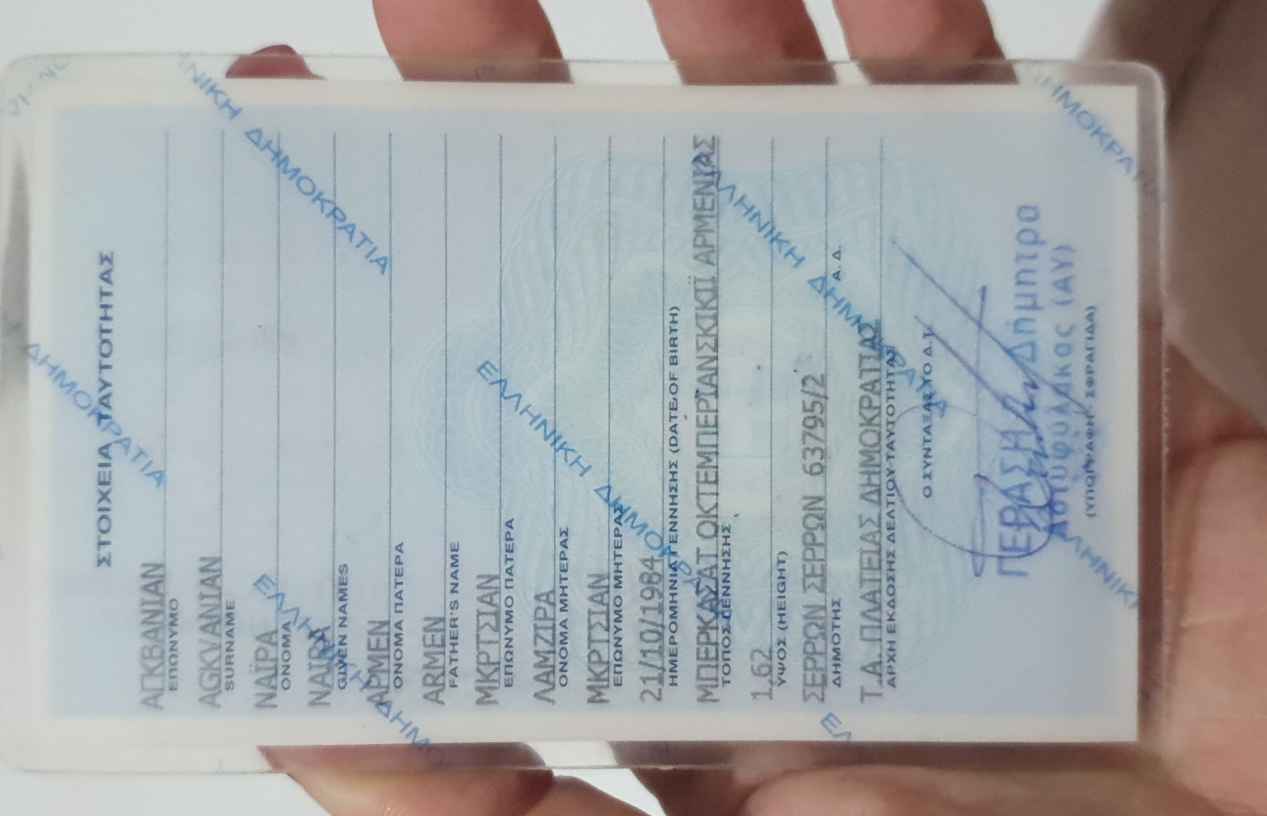 ΣΤΟΙΧΕΙΑ ΤΑΥΤΟΤΗΤΑΣ
ΑΓΚΒΑΝΙΑΝ
ΕΠΩΝΥΜΟ
AGKVANIAN
SURNAME
ΝΑΪΡΑ
ΟΝΟΜΑ
NAIRA
GIVEN NAMES
ΑΡΜΕΝ
ΟΝΟΜΑ ΠΑΤΕΡΑ
ARMEN
FATHER'S NAME
ΜΚΡΤΣΙΑΝ
ΕΠΩΝΥΜΟ ΠΑΤΕΡΑ
ΛΑΜΖΙΡΑ
ΟΝΟΜΑ ΜΗΤΕΡΑΣ
ΜΚΡΤΣΙΑΝ
ΕΠΩΝΥΜΟ ΜΗΤΕΡΑΣ
21/10/1984
ΗΜΕΡΟΜΗΝΙΑ ΓΕΝΝΗΣΗΣ (DATE OF BIRTH)
ΜΠΕΡΚΑΣΑΤ ΟΚΤΕΜΠΕΡΙΑΝΣΚΙΚΙΪ ΑΡΜΕΝΙΑΣ
ΤΟΠΟΣ ΓΕΝΝΗΣΗΣ
1,62
ΥΨΟΣ (HEIGHT)
ΣΕΡΡΩΝ ΣΕΡΡΩΝ 63795/2
ΔΗΜΟΤΗΣ Α.Δ.
Τ.Α.ΠΛΑΤΕΙΑΣ ΔΗΜΟΚΡΑΤΙΑΣ
ΑΡΧΗ ΕΚΔΟΣΗΣ ΔΕΛΤΙΟΥ ΤΑΥΤΟΤΗΤΑΣ
Ο ΣΥΝΤΑΞΑΣ ΤΟ Δ.Τ.
ΠΕΡΑΣΗ Δήμητρα
Αστυφύλακας (ΑΥ)
(ΥΠΟΓΡΑΦΗ- ΣΦΡΑΓΙΔΑ)
ΕΛΛΗΝΙΚΗ ΔΗΜΟΚΡΑΤΙΑ